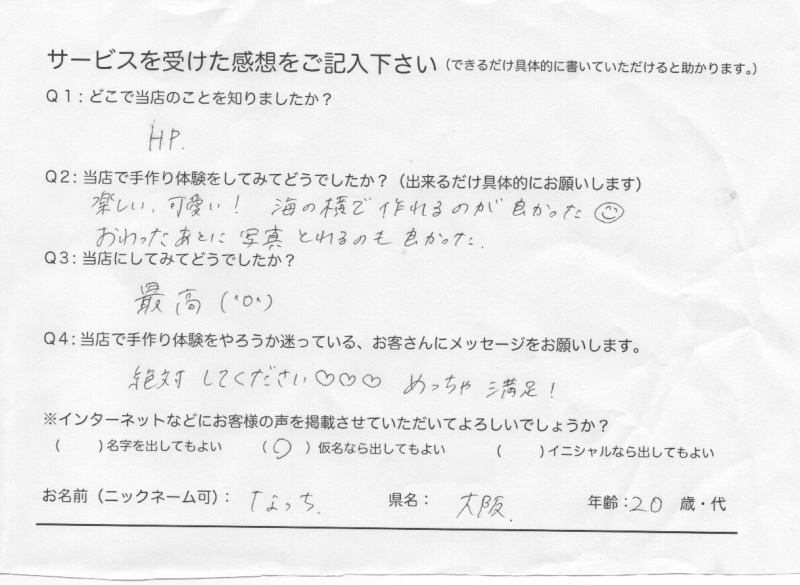 サービスを受けた感想をご記入下さい（できるだけ具体的に書いていただけると助かります。）
Ｑ１：どこで当店のことを知りましたか？
HP.
Ｑ２：当店で手作り体験をしてみてどうでしたか？（出来るだけ具体的にお願いします）
楽しい、可愛い！ 海の横で作れるのが良かった☺
おわったあとに写真とれるのも良かった.
Ｑ３：当店にしてみてどうでしたか？
最高（'o'）
Ｑ４：当店で手作り体験をやろうか迷っている、お客さんにメッセージをお願いします。
絶対してください♡♡♡ めっちゃ満足！
※インターネットなどにお客様の声を掲載させていただいてよろしいでしょうか？
（　　）名字を出してもよい　（ ○ ）仮名なら出してもよい　（　　）イニシャルなら出してもよい
お名前（ニックネーム可）： なっち. 県名： 大阪. 年齢：20 歳・代